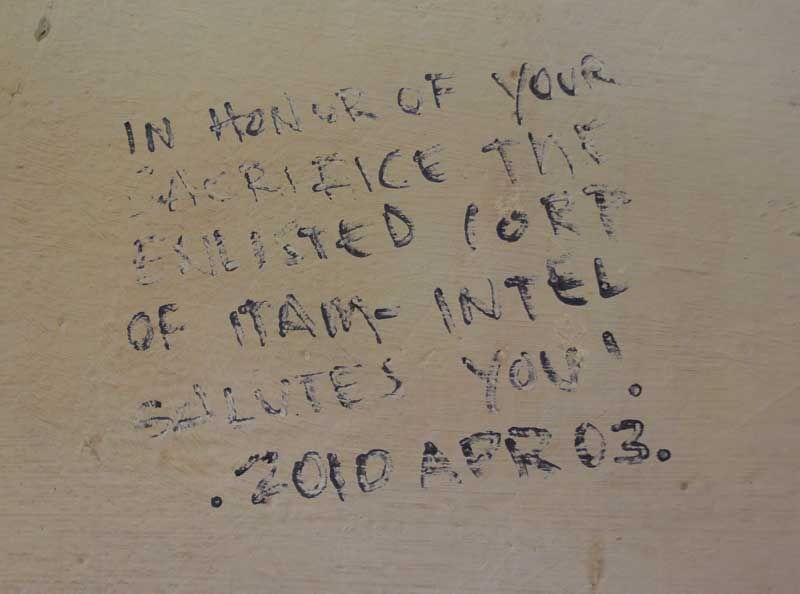 IN HONOR OF YOUR
SACRIFICE THE
ENLISTED
OF ITAM-INTEL
SALUTES YOU!
.2010 APR 03.